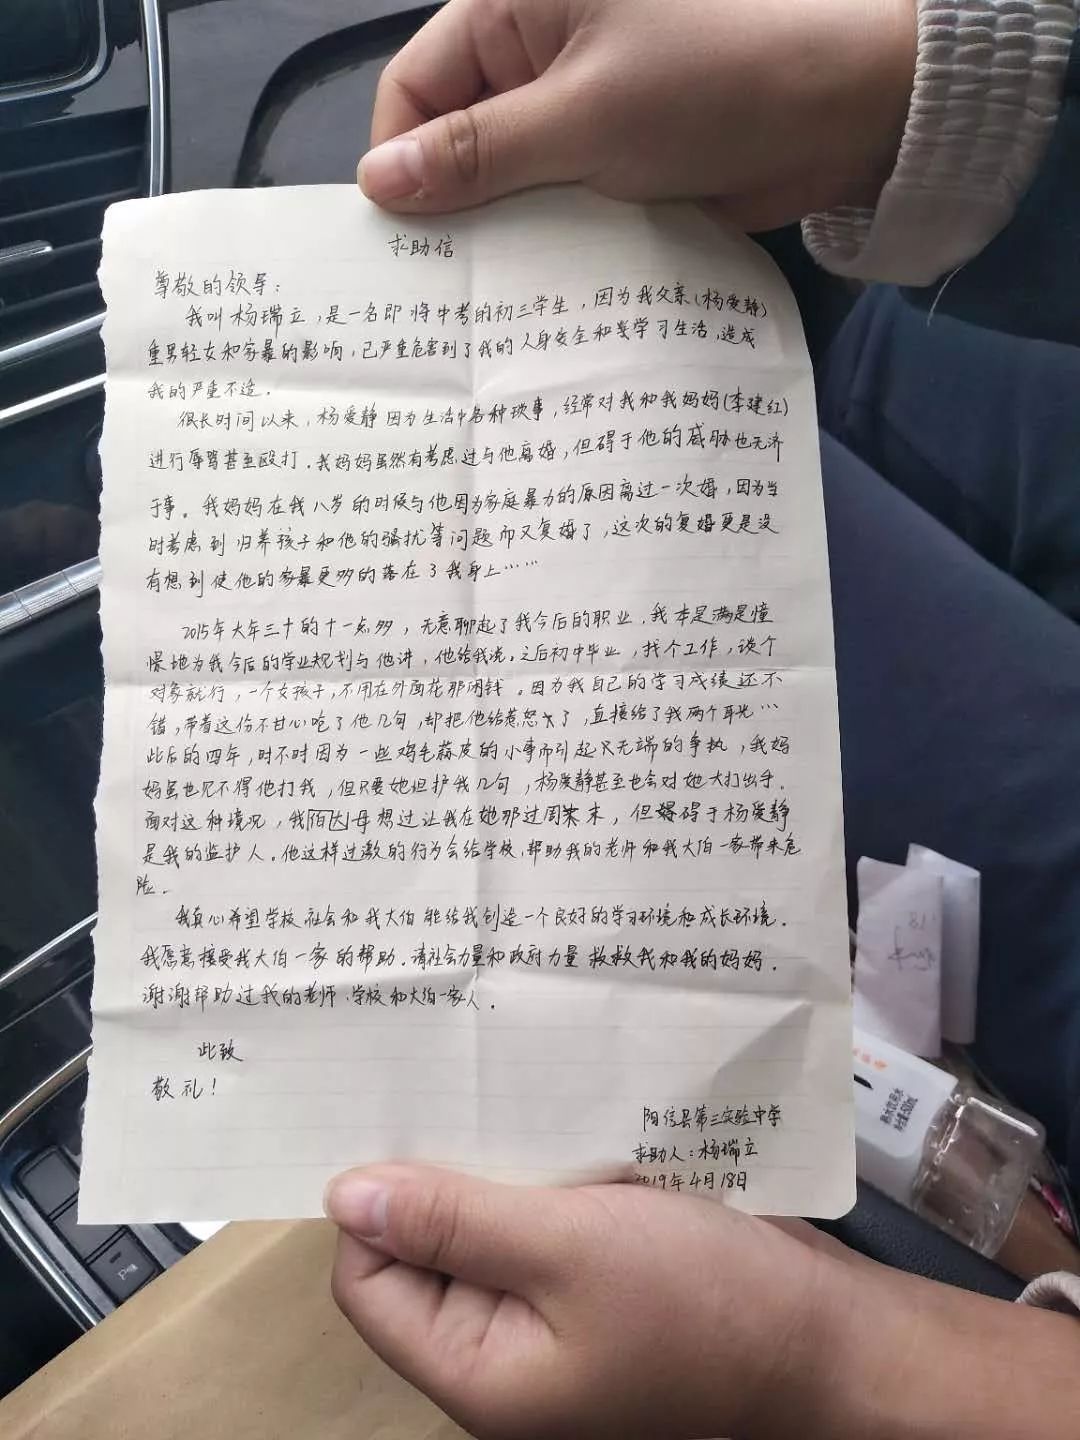 求助信
尊敬的领导：
我叫杨瑞立，是一名即将中考的初三学生，因为我父亲(杨爱静)
重男轻女和家暴的影响，已严重危害到了我的人身安全和学习生活，造成
我的严重不适。
很长时间以来，杨爱静因为生活中各种琐事，经常对我和我妈妈(李建红)
进行辱骂甚至殴打。我妈妈虽然有考虑过与他离婚，但碍于他的威胁也无济
于事。我妈妈在我八岁的时候与他因为家庭暴力的原因离过一次婚，因为当
时考虑到归养孩子和他的骚扰等问题而又复婚了，这次的复婚更是没
有想到使他的家暴更多的落在了我身上……
2015年大年三十的十一点多，无意聊起了我今后的职业，我本是满是憧
憬地为我今后的学业规划与他讲，他给我说。之后初中毕业，找个工作，谈个
对象就行，一个女孩子，不用在外面花那闲钱。因为我自己的学习成绩还不
错，带着这份不甘心吃了他几句，却把他给惹怒了，直接给了我两个耳光…
此后的四年，时不时因为一些鸡毛蒜皮的小事而引起无端的争执，我妈
妈虽也见不得他打我，但只要她袒护我几句，杨爱静甚至也会对她大打出手。
面对这种境况，我大母想过让我在她那过周末，但碍于杨爱静
是我的监护人。他这样过激的行为会给学校，帮助我的老师和我大伯一家带来危
险。
我真心希望学校社会和我大伯能给我创造一个良好的学习环境和成长环境。
我愿意接受我大伯一家的帮助。请社会力量和政府力量救救我和我的妈妈。
谢谢帮助过我的老师、学校和大伯一家人。
此致
敬礼！
阳信县第三实验中学
求助人：杨瑞立
2019年4月18日